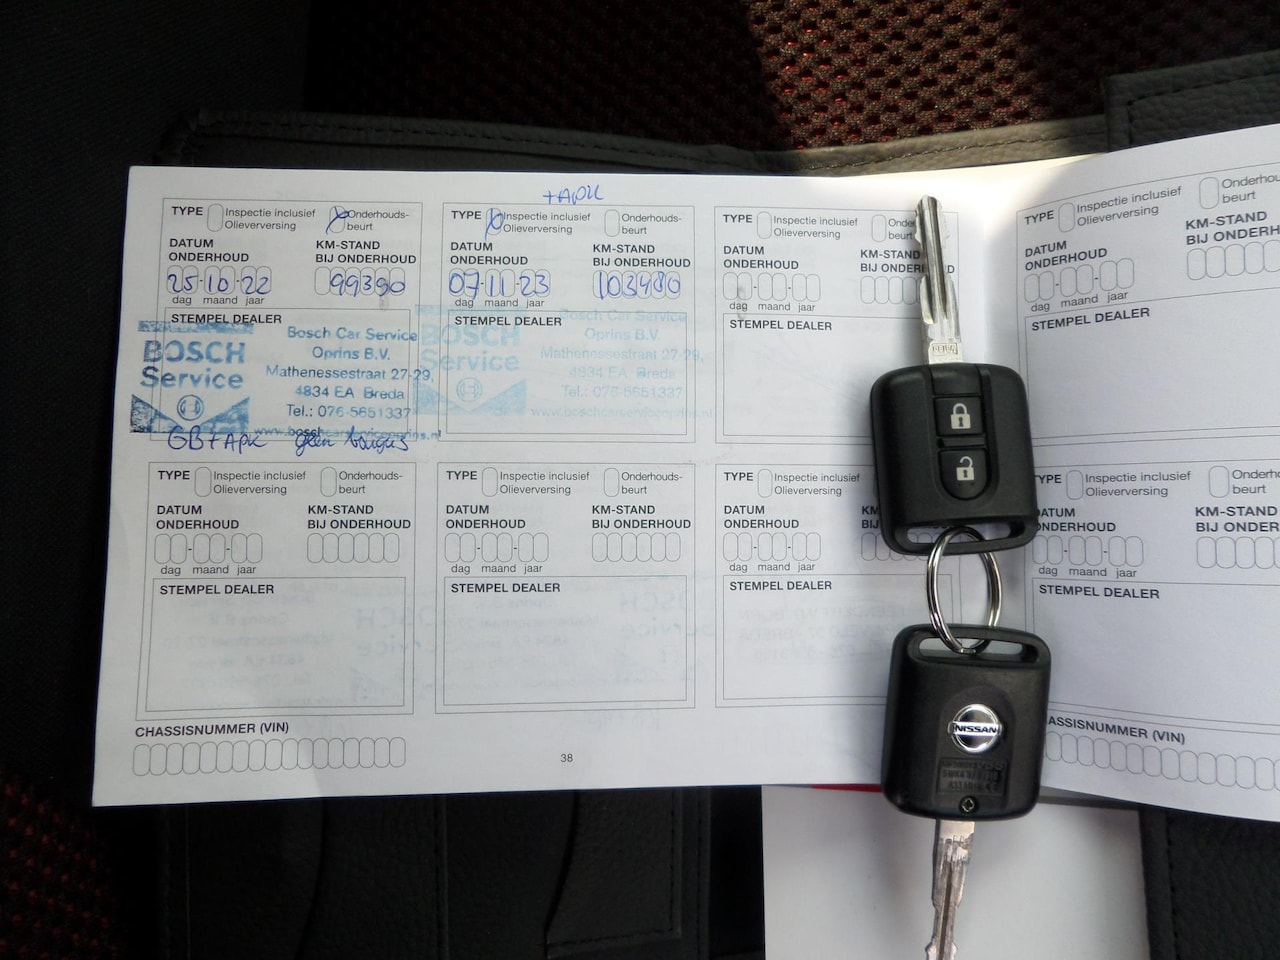 +APK
TYPE Inspectie inclusief Olieverversing Onderhouds- beurt
DATUM ONDERHOUD KM-STAND BIJ ONDERHOUD
25-10-22 99390
dag maand jaar
STEMPEL DEALER
BOSCH Service
Bosch Car Service
Oprins B.V.
Mathenessestraat 27-29,
4834 EA Breda
Tel.: 076-5651337
www.boschcarserviceoprins.nl
GB+APK geen
TYPE Inspectie inclusief Olieverversing Onderhouds- beurt
DATUM ONDERHOUD KM-STAND BIJ ONDERHOUD
07-11-23 103480
dag maand jaar
STEMPEL DEALER
BOSCH Service
Bosch Car Service
Oprins B.V.
Mathenessestraat 27-29,
4834 EA Breda
Tel.: 076-5651337
www.boschcarserviceoprins.nl
TYPE Inspectie inclusief Olieverversing Onderhouds- beurt
DATUM ONDERHOUD KM-STAND BIJ ONDERHOUD
dag maand jaar
STEMPEL DEALER
TYPE Inspectie inclusief Olieverversing Onderhou
DATUM ONDERHOUD KM-STAND BIJ ONDERH
dag maand jaar
STEMPEL DEALER
TYPE Inspectie inclusief Olieverversing Onderhouds- beurt
DATUM ONDERHOUD KM-STAND BIJ ONDERHOUD
dag maand jaar
STEMPEL DEALER
TYPE Inspectie inclusief Olieverversing Onderhouds- beurt
DATUM ONDERHOUD KM-STAND BIJ ONDERHOUD
dag maand jaar
STEMPEL DEALER
TYPE Inspectie inclusief Olieverversing
DATUM ONDERHOUD
dag maand jaar
STEMPEL DEALER
TYPE Inspectie inclusief Olieverversing Onderho beurt
DATUM ONDERHOUD KM-STAND BIJ ONDER
dag maand jaar
STEMPEL DEALER
CHASSISNUMMER (VIN)
38
ASSISNUMMER (VIN)
NISSAN